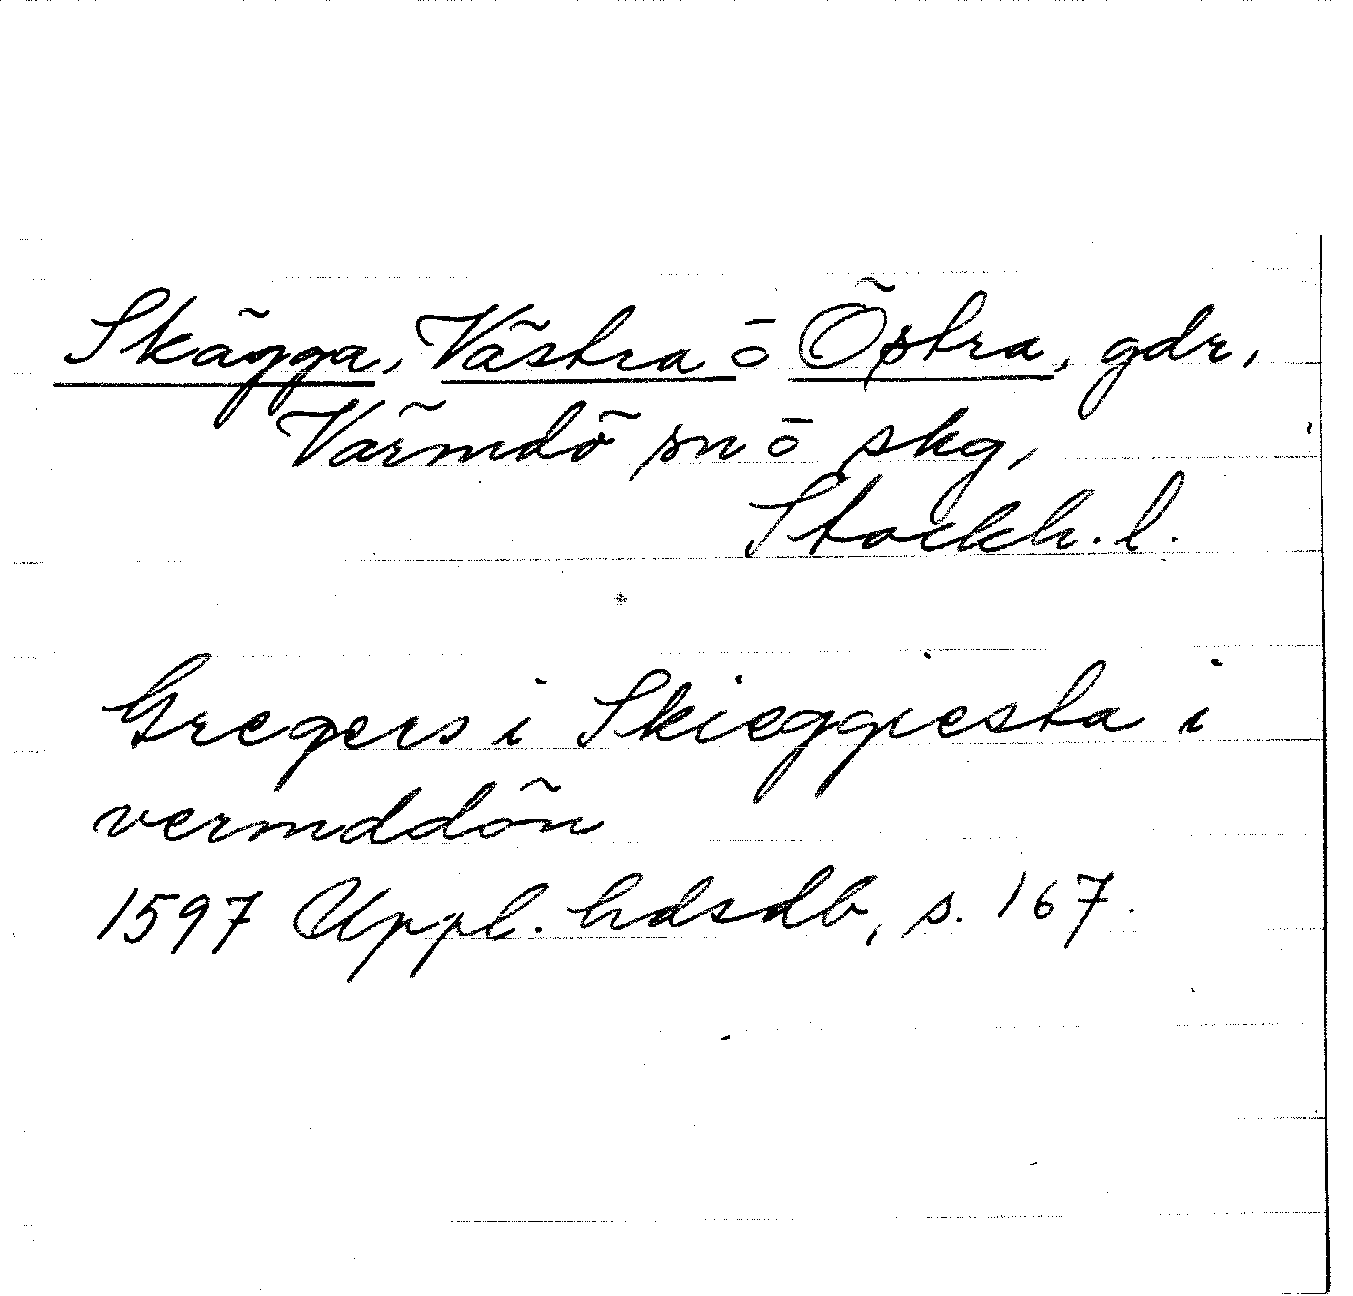 Skägga, Västra o Östra, gdr,
Värmdö sn o skg,
Stockh. l.
Gregers i Skieggiesta i
vermddön
1597 Uppl. hdsdb, s. 167.